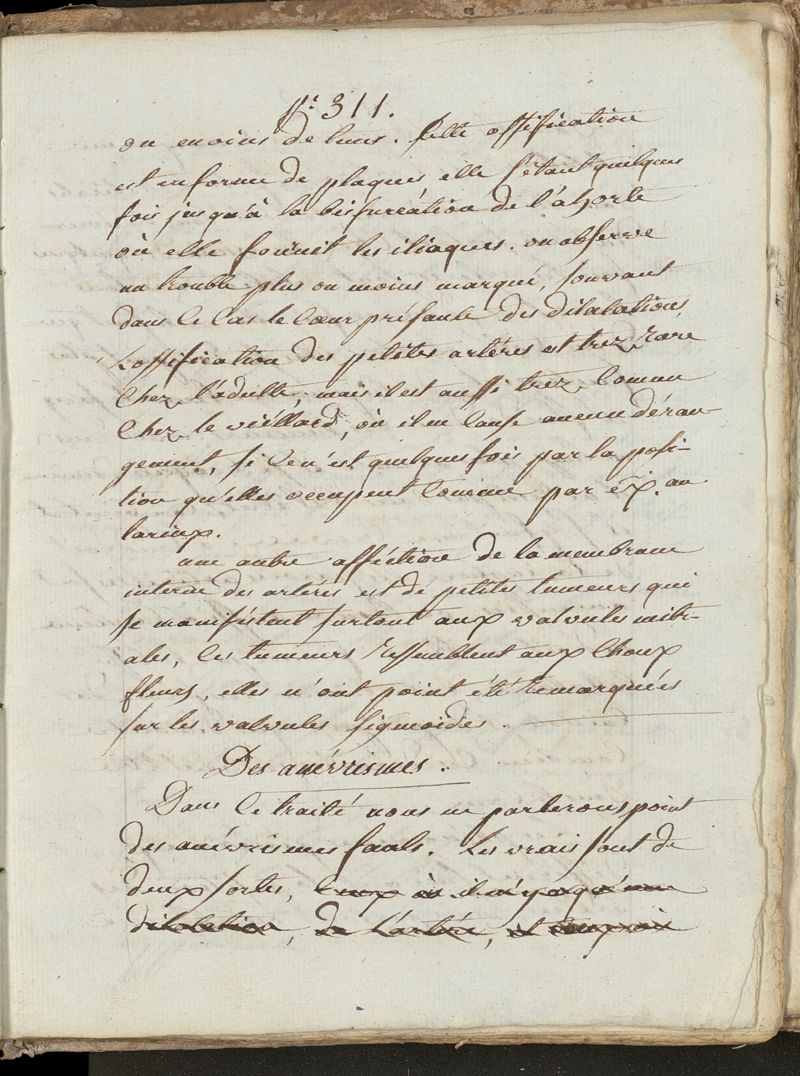 P.r 311.
ou moins de lieus. Cette ossification
est en forme de plaques elle s'étant quelques
fois jusqu'à la bisfurcation de l'ahorte
où elle fournit les iliaques. on observe
un trouble plus ou moins marqué, souvant
dans ce cas le cœur présante des dilatations,
L'ossification des pétites artéres est trez rare
chez l'adulte, mais il est aussi trez comun
chez le vieillard, où il ne cause aucun déran-
gement, si ce n'est quelques fois par la posi-
tion qu'elles occupent comme par ex. au
larinx.
une autre afféction de la membrane
interne des artéres est dé petites tumeurs qui
se manifestent surtout aux valvules mitr-
ales, ces tumeurs ressemblent aux choux
fleurs, elles n'ont point été remarquées
sur les valvules sigmoides.
Des anévrismes.
Dans ce traité nous ne parlerons point
des anévrismes fauls. Les vrais sont de
deux sortes, ceux où il n'y a qu'une
dilatation, de l'artére, et ceux où